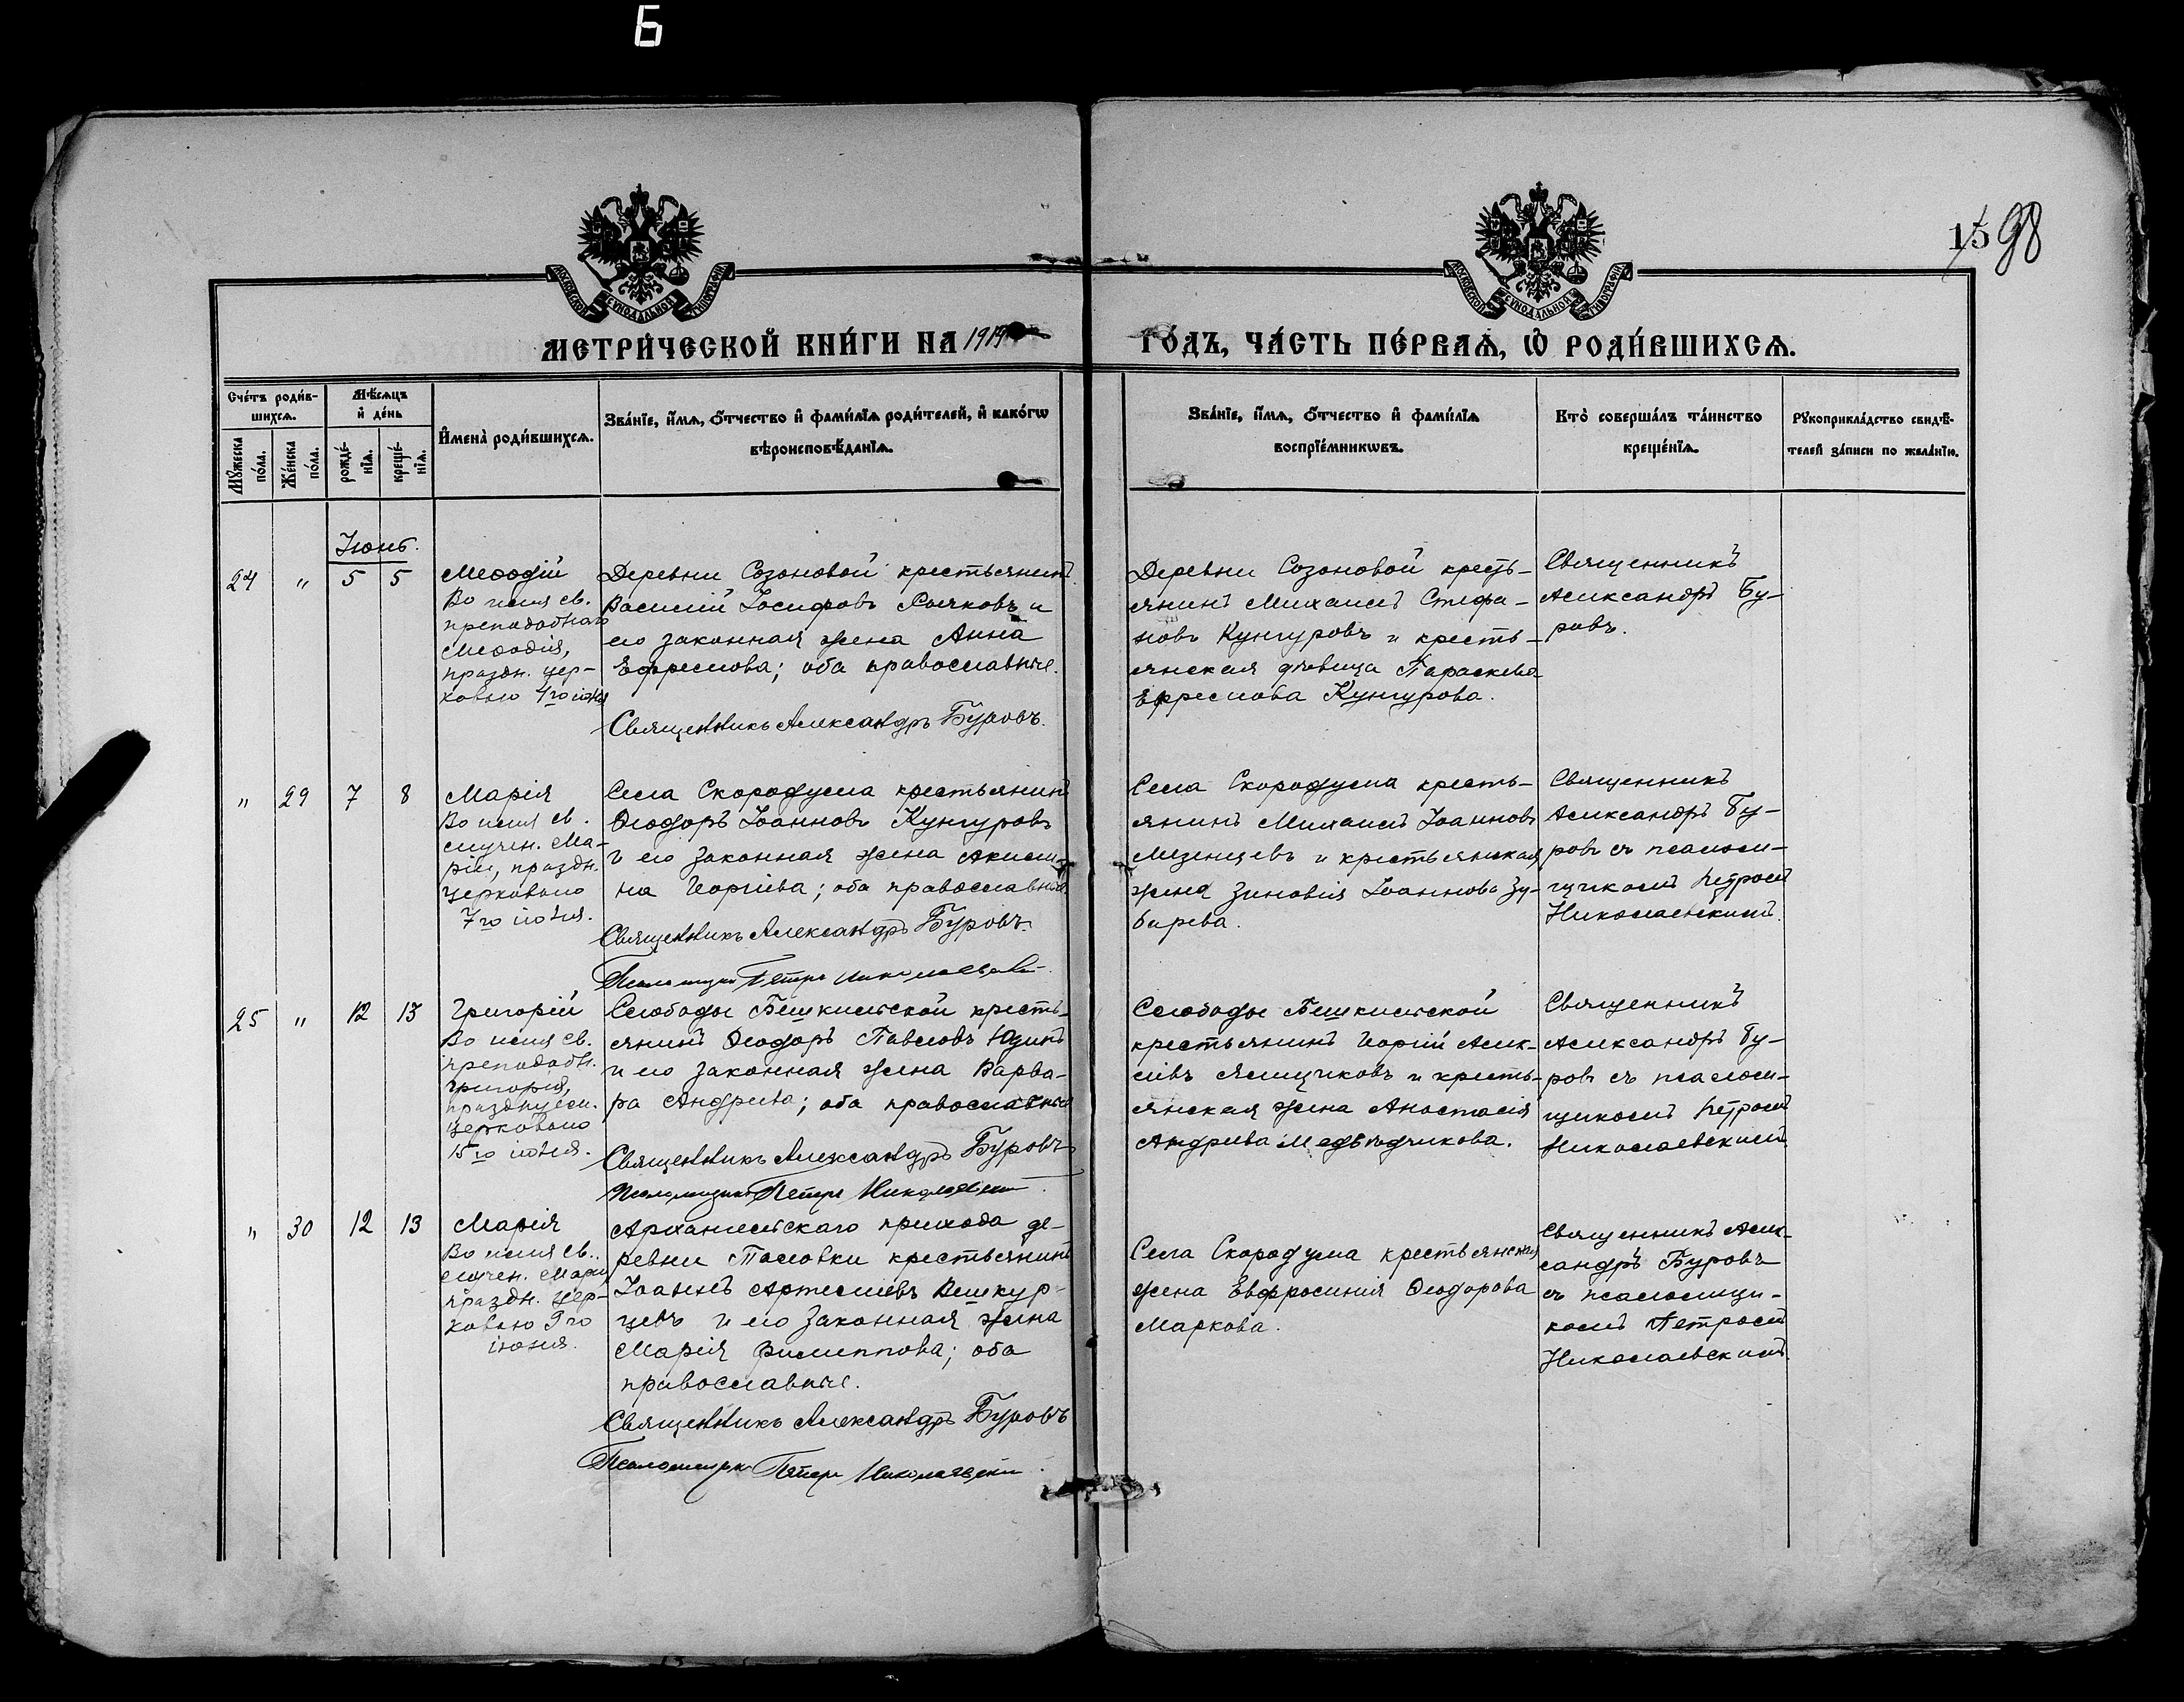 Б
15 98
МОСКОВСКОЙ СѴНОДАЛЬНОЙ ТИПОГРАФІИ
МОСКОВСКОЙ СѴНОДАЛЬНОЙ ТИПОГРАФІИ
МЕТРИ́ЧЕСКОЙ КНИ́ГИ НА 1919
ГО́ДЪ, ЧА́СТЬ ПЕ́РВАѦ, Ѡ РОДИ́ВШИХСѦ.
Сче́тъ роди́в-
шихсѧ.
Мѣ́сѧцъ
и҆ де́нь
Мꙋ́жеска
по́ла.
Же́нска
по́ла.
рожде́-
нїѧ.
креще́-
нїѧ.
И҆мена̀ роди́вшихсѧ.
Зва́нїе, и҆́мѧ, ѻ҆́тчество и҆ фами́лїѧ роди́телей, и҆ како́гѡ
вѣроисповѣ́данїѧ.
Зва́нїе, и҆́мѧ, ѻ҆́тчество и҆ фами́лїѧ
воспрїе́мникѡвъ.
Кто̀ соверша́лъ та́инство
креще́нїѧ.
Рꙋкоприкла́дство свидѣ́-
телей за́писи по жела́нїю.
Іюнь.
24 " 5 5
Меѳодій
Во имя св.
преподобнаго
Меѳодія,
праздн. цер-
ковью 4го іюня
Деревни Созоновой крестьянинъ
Василій Іосифовъ и
его законная жена Анна
Ефремова; оба православные.
Священникъ Александръ Буровъ.
Деревни Созоновой кресть-
янинъ Михаилъ Стефа-
новъ Кунгуровъ и кресть-
янская дѣвица Параскева
Ефремова Кунгурова.
Священникъ
Александръ Бу-
ровъ.
" 29 7 8
Марія
Во имя св.
мучен. Ма-
ріи, праздн.
церковью
7го іюня.
Села Скородума крестьянинъ
Ѳеодоръ Іоанновъ Кунгуровъ
и его законная жена Акили-
на Георгіева; оба православные
Священникъ Александръ Буровъ.
Псаломщикъ Петръ Николаевскій.
Села Скородума кресть-
янинъ Михаилъ Іоанновъ
Мезенцевъ и крестьянская
жена Зиновія Іоаннова Зу-
барева.
Священникъ
Александръ Бу-
ровъ съ псалом-
щикомъ Петромъ
Николаевскимъ.
25 " 12 13
Григорій
Во имя св.
преподобн.
Григорія,
празднуем.
церковью
15го іюня.
Слободы Бешкильской кресть-
янинъ Ѳеодоръ Павловъ Юдинъ
и его законная жена Варва-
ра Андреева; оба православные
Священникъ Александръ Буровъ
Псаломщикъ Петръ Николаевскій.
Слободы Бешкильской
крестьянинъ Георгій Алек-
сѣевъ Ямщиковъ и кресть-
янская жена Анастасія
Андреева Медвѣдчикова.
Священникъ
Александръ Бу-
ровъ съ псалом-
щикомъ Петромъ
Николаевскимъ.
" 30 12 13
Марія
Во имя св.
мучен. Маріи,
праздн. цер-
ковью 9го
іюня.
Архангельскаго прихода де-
ревни Павловки крестьянинъ
Іоаннъ Артеміевъ Вешкур-
цевъ и его законная жена
Марія Филиппова; оба
православные.
Священникъ Александръ Буровъ
Псаломщикъ Петръ Николаевскій.
Села Скородума крестьянская
жена Евфросинія Ѳеодорова
Маркова.
Священникъ Алек-
сандръ Буровъ
съ псаломщи-
комъ Петромъ
Николаевскимъ.